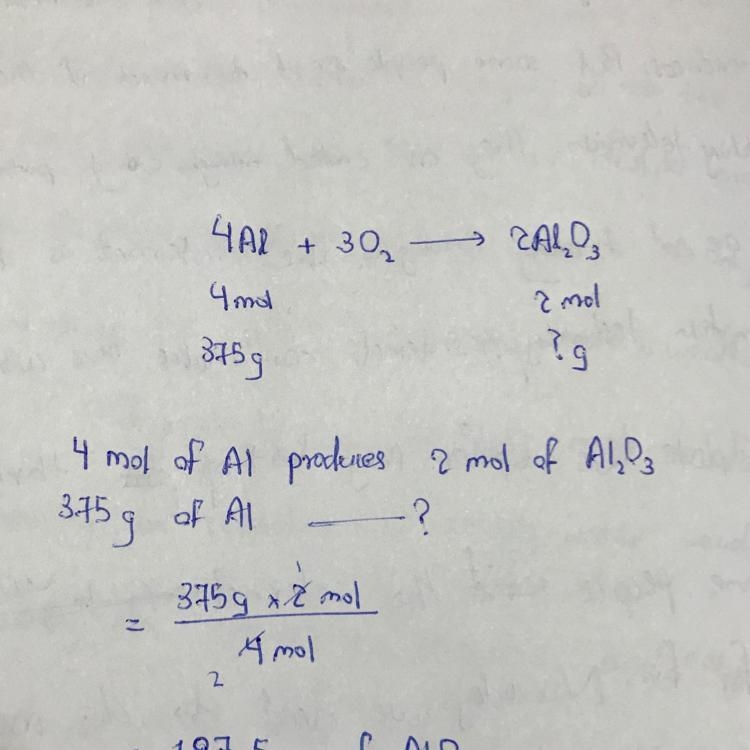 4Al + 3O₂ ⟶ 2Al₂O₃
4mol 2 mol
375g ? g
4 mol of Al produces 2 mol of Al₂O₃
375g of Al —— ?
= 375g × 2 mol 1
4 mol
2